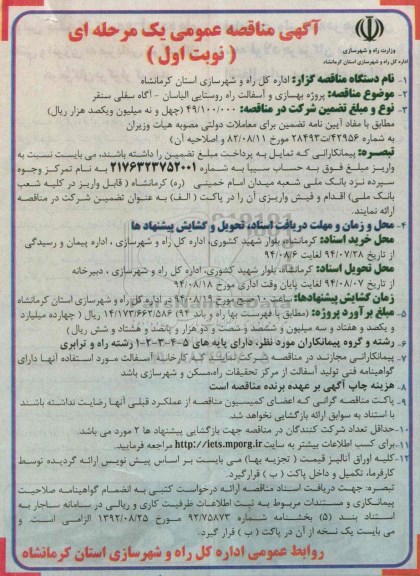 آگهی مناقصه عمومی یک مرحله ای
( نوبت اول )
وزارت راه و شهرسازی
اداره کل راه و شهرسازی استان کرمانشاه
۱- نام دستگاه مناقصه گزار: اداره کل راه و شهرسازی استان کرمانشاه
۲- موضوع مناقصه: پروژه بهسازی و آسفالت راه روستایی الیاسان - آگاه سفلی سنقر
۳- نوع و مبلغ تضمین شرکت در مناقصه: ۴۹/۱۰۰/۰۰۰ (چهل و نه میلیون ویکصد هزار ریال)
مطابق با مفاد آیین نامه تضمین برای معاملات دولتی مصوبه هیات وزیران
به شماره ۴۲۹۵۶/ت۲۸۴۹۳ مورخ ۸۲/۰۸/۱۱ و اصلاحیه آن)
تبصره: پیمانکارانی که تمایل به پرداخت مبلغ تضمین را داشته باشند، می بایست نسبت به
واریز مبلغ فوق به حساب سیبا به شماره ۲۱۷۶۳۲۳۷۵۲۰۰۱ به نام تمرکز وجوه
سپرده نزد بانک ملی شعبه میدان امام خمینی (ره) کرمانشاه ( قابل واریز در کلیه شعب
بانک ملی) اقدام و فیش واریزی آن را در پاکت ( الف ) به عنوان تضمین شرکت در مناقصه
ارائه نمایند.
۴- محل و زمان و مهلت دریافت اسناد، تحویل و گشایش پیشنهاد ها
محل خرید اسناد: کرمانشاه، بلوار شهید کشوری، اداره کل راه و شهرسازی ، اداره پیمان و رسیدگی
از تاریخ ۹۴/۰۷/۲۸ لغایت ۹۴/۰۸/۰۶
محل تحویل اسناد: کرمانشاه، بلوار شهید کشوری، اداره کل راه و شهرسازی ، دبیرخانه
از تاریخ ۹۴/۰۸/۰۷ لغایت پایان وقت اداری مورخ ۹۴/۰۸/۱۸
زمان گشایش پیشنهادها: ساعت ۱۰ صبح مورخ ۹۴/۰۸/۱۹ در اداره کل راه و شهرسازی استان کرمانشاه
۵- مبلغ برآورد پروژه: (مطابق با فهرست بها راه و باند ۹۴) ۱۴/۱۷۳/۶۶۲/۵۸۶ ریال ( چهارده میلیارد
و یکصد و هفتاد و سه میلیون و ششصد و شصت و دو هزار و پانصد و هشتاد و شش ریال)
۶- رشته و گروه پیمانکاران مورد نظر، دارای پایه های ۵-۴-۳-۲-۱ رشته راه و ترابری
۷- پیمانکارانی مجازند در مناقصه شرکت نمایند که کارخانه آسفالت مورد استفاده آنها دارای
گواهینامه فنی تولید آسفالت از مرکز تحقیقات راه،مسکن و شهرسازی باشد
۸- هزینه چاپ آگهی بر عهده برنده مناقصه است
۹- پاکت مناقصه گرانی که اعضای کمیسیون مناقصه از عملکرد قبلی آنها رضایت نداشته باشند
با استناد به سوابق ارائه بازگشایی نخواهد شد.
۱۰- حداقل تعداد شرکت کنندگان در مناقصه جهت بازگشایی پیشنهاد ها ۲ مورد می باشد.
۱۱- برای کسب اطلاعات بیشتر به سایت http://iets.mporg.ir مراجعه فرمایید.
۱۲- کلیه اوراق آنالیز قیمت ( تجزیه بها) می بایست بر اساس پیش نویس ارائه گردیده توسط
کارفرما، تکمیل و داخل پاکت ( ب ) قرار گیرد.
تبصره: جهت دریافت اسناد مناقصه ارائه درخواست کتبی به انضمام گواهینامه صلاحیت
پیمانکاری و مستندات مربوط به ثبت اطلاعات ظرفیت کاری و ریالی در سامانه ساجار به
استناد بند (۵) بخشنامه شماره ۹۲/۷۵۸۷۳ مورخ ۱۳۹۲/۰۸/۲۵ الزامی است. و
می بایست یک نسخه از آن در پاکت ( ب ) قرار گیرد.
روابط عمومی اداره کل راه و شهرسازی استان کرمانشاه